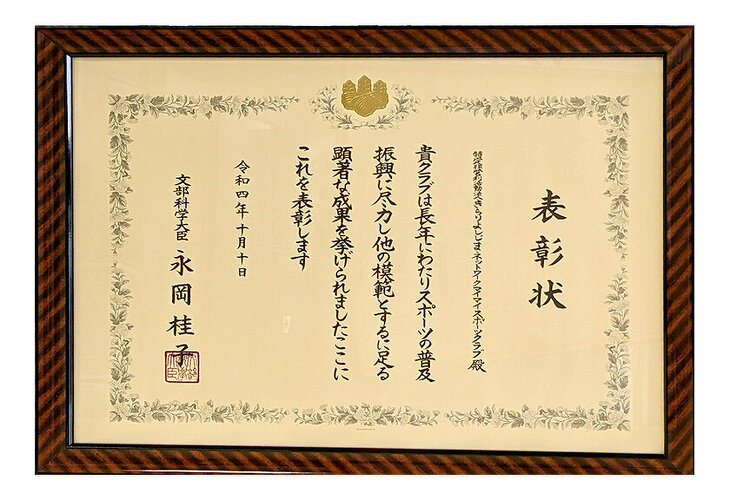 表彰状
特定非営利活動法人きらりよしじまネットワークマイマイスポーツクラブ殿
貴クラブは長年にわたりスポーツの普及
振興に尽力し他の模範とするに足る
顕著な成果を挙げられましたここに
これを表彰します
令和四年十月十日
文部科学大臣 永岡桂子